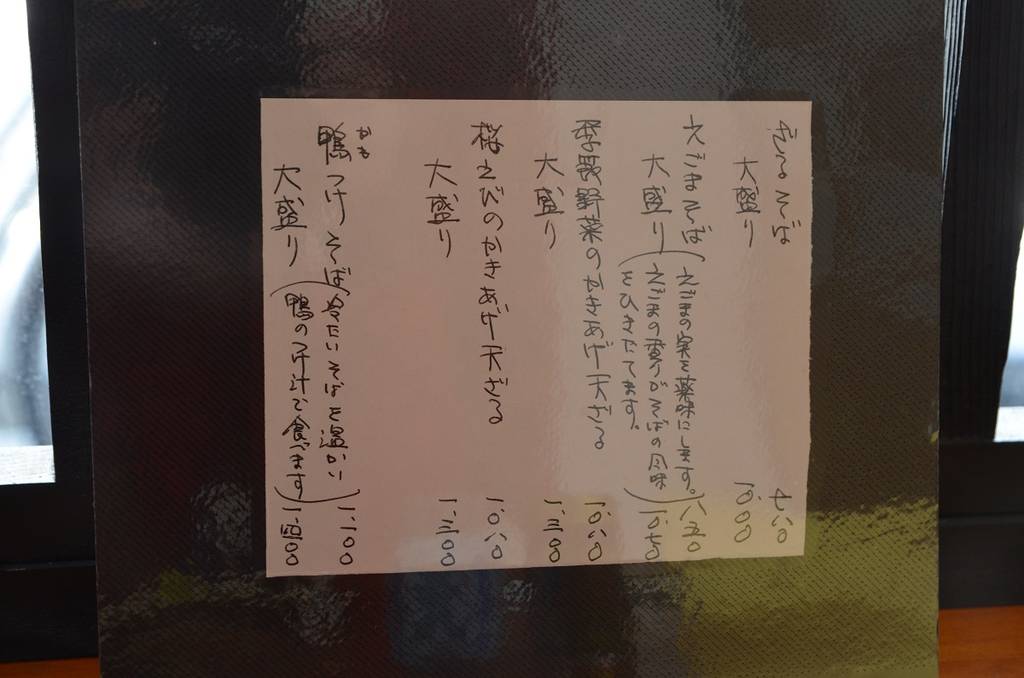 ざるそば 七八〇
大盛り 一〇〇〇
えごまそば 八五〇
(えごまの実を薬味にします。
大盛り 一〇七〇
えごまの香りがそばの風味
をひきたてます。)
季節野菜のかきあげ天ざる 一〇八〇
大盛り 一、三〇〇
桜えびのかきあげ天ざる 一〇八〇
大盛り 一、三〇〇
鴨つけそば 一、一〇〇
かも
(冷たいそばを温かい
大盛り
鴨のつけ汁で食べます)